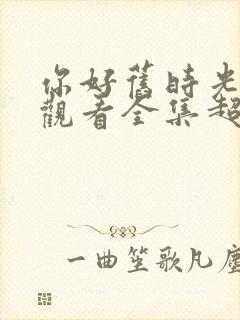 你好舊時光
觀看全集超
一曲笙歌凡塵